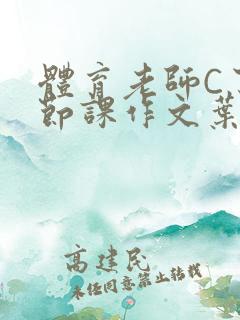 體育老師C
節課作文葉
高建民
未经同意禁止转载